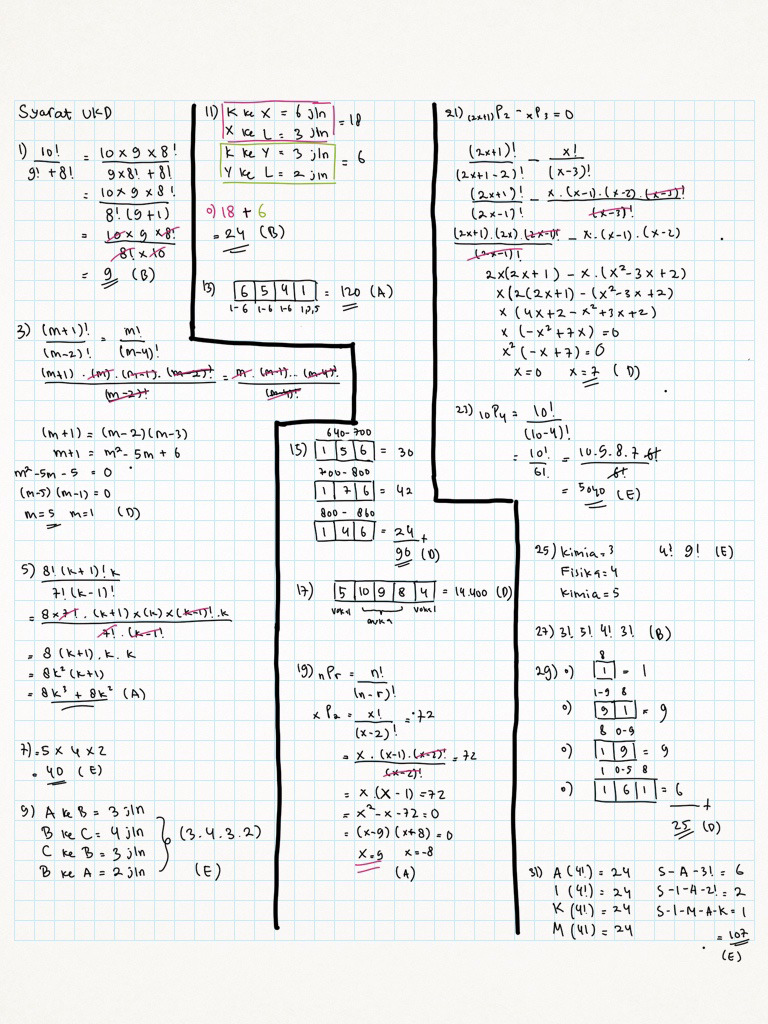 Syarat UKD
1) 10! / 9! + 8! = 10 × 9 × 8! / 9×8! + 8!
= 10 × 9 × 8! / 8! (9+1)
= 10 × 9 × 8! / 8! × 10
= 9 (B)
3) (m+1)! / (m-2)! = m! / (m-4)!
(m+1) . (m) . (m-1) . (m-2)! / (m-2)! = m . (m-1)... (m-4)! / (m-4)!
(m+1) = (m-2)(m-3)
m+1 = m² - 5m + 6
m² - 5m - 5 = 0
(m-5) (m-1) = 0
m = 5 m = 1 (D)
5) 8! (k+1)! k / 7! (k-1)!
= 8 × 7! . (k+1) × (k) × (k-1)! . k / 7! . (k-1)!
= 8 (k+1) . k . k
= 8k² (k+1)
= 8k³ + 8k² (A)
7) = 5 × 4 × 2
= 40 (E)
9) A ke B = 3 jln
B ke C = 4 jln
C ke B = 3 jln
B ke A = 2 jln
(3.4.3.2)
(E)
11) K ke X = 6 jln
X ke L = 3 jln
= 18
K ke Y = 3 jln
Y ke L = 2 jln
= 6
o) 18 + 6
= 24 (B)
13) 6 5 4 1 = 120 (A)
1-6 1-6 1-6 1,3,5
15) 640-700
1 5 6 = 30
700-800
1 7 6 = 42
800 - 860
1 4 6 = 24 +
96 (D)
17) 5 10 9 8 4 = 14.400 (D)
vokal angka vokal
19) nPr = n! / (n-r)!
x P₂ = x! / (x-2)! = 72
= x . (x-1) . (x-2)! / (x-2)! = 72
= x (x - 1) = 72
= x² - x - 72 = 0
= (x-9) (x+8) = 0
x = 9 x = -8
(A)
21) (2x+1)P₂ - xP₃ = 0
(2x+1)! / (2x+1-2)! - x! / (x-3)!
(2x+1)! / (2x-1)! - x . (x-1) . (x-2) . (x-3)! / (x-3)!
(2x+1) . (2x) . (2x-1)! / (2x-1)! - x . (x-1) . (x-2)
2x(2x+1) - x . (x²-3x+2)
x (2(2x+1) - (x²-3x+2)
x (4x+2 - x² + 3x + 2)
x (-x² + 7x) = 0
x² (-x + 7) = 0
x = 0 x = 7 (D)
23) 10P4 = 10! / (10-4)!
= 10! / 6! = 10.9.8.7.6! / 6!
= 5040 (E)
25) Kimia = 3 4! 9! (E)
Fisika = 4
Kimia = 5
27) 3! 5! 4! 3! (B)
8
29) o) 1 = 1
1-9 8
o) 9 1 = 9
8 0-9
o) 1 9 = 9
1 0-5 8
o) 1 6 1 = 6 +
25 (D)
31) A (4!) = 24 S-A-3! = 6
I (4!) = 24 S-I-A-2! = 2
K (4!) = 24 S-I-M-A-K = 1
M (4!) = 24 = 107
(E)